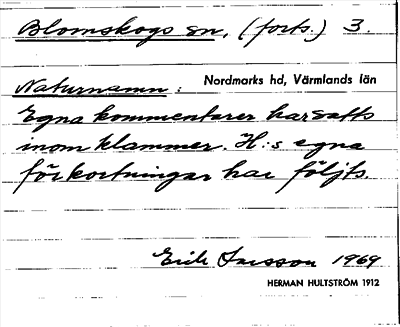 Blomskogs sn, (forts.) 3.
Nordmarks hd, Värmlands län
Naturnamn:
Egna kommentarer har satts
inom klammer. H:s egna
förkortningar har följts.
Erik Larsson 1969
HERMAN HULTSTRÖM 1912